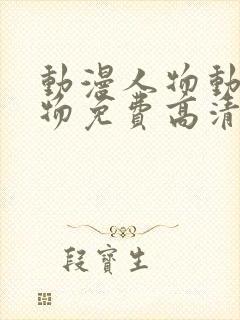 動漫人物動
物免费高清
段寶生